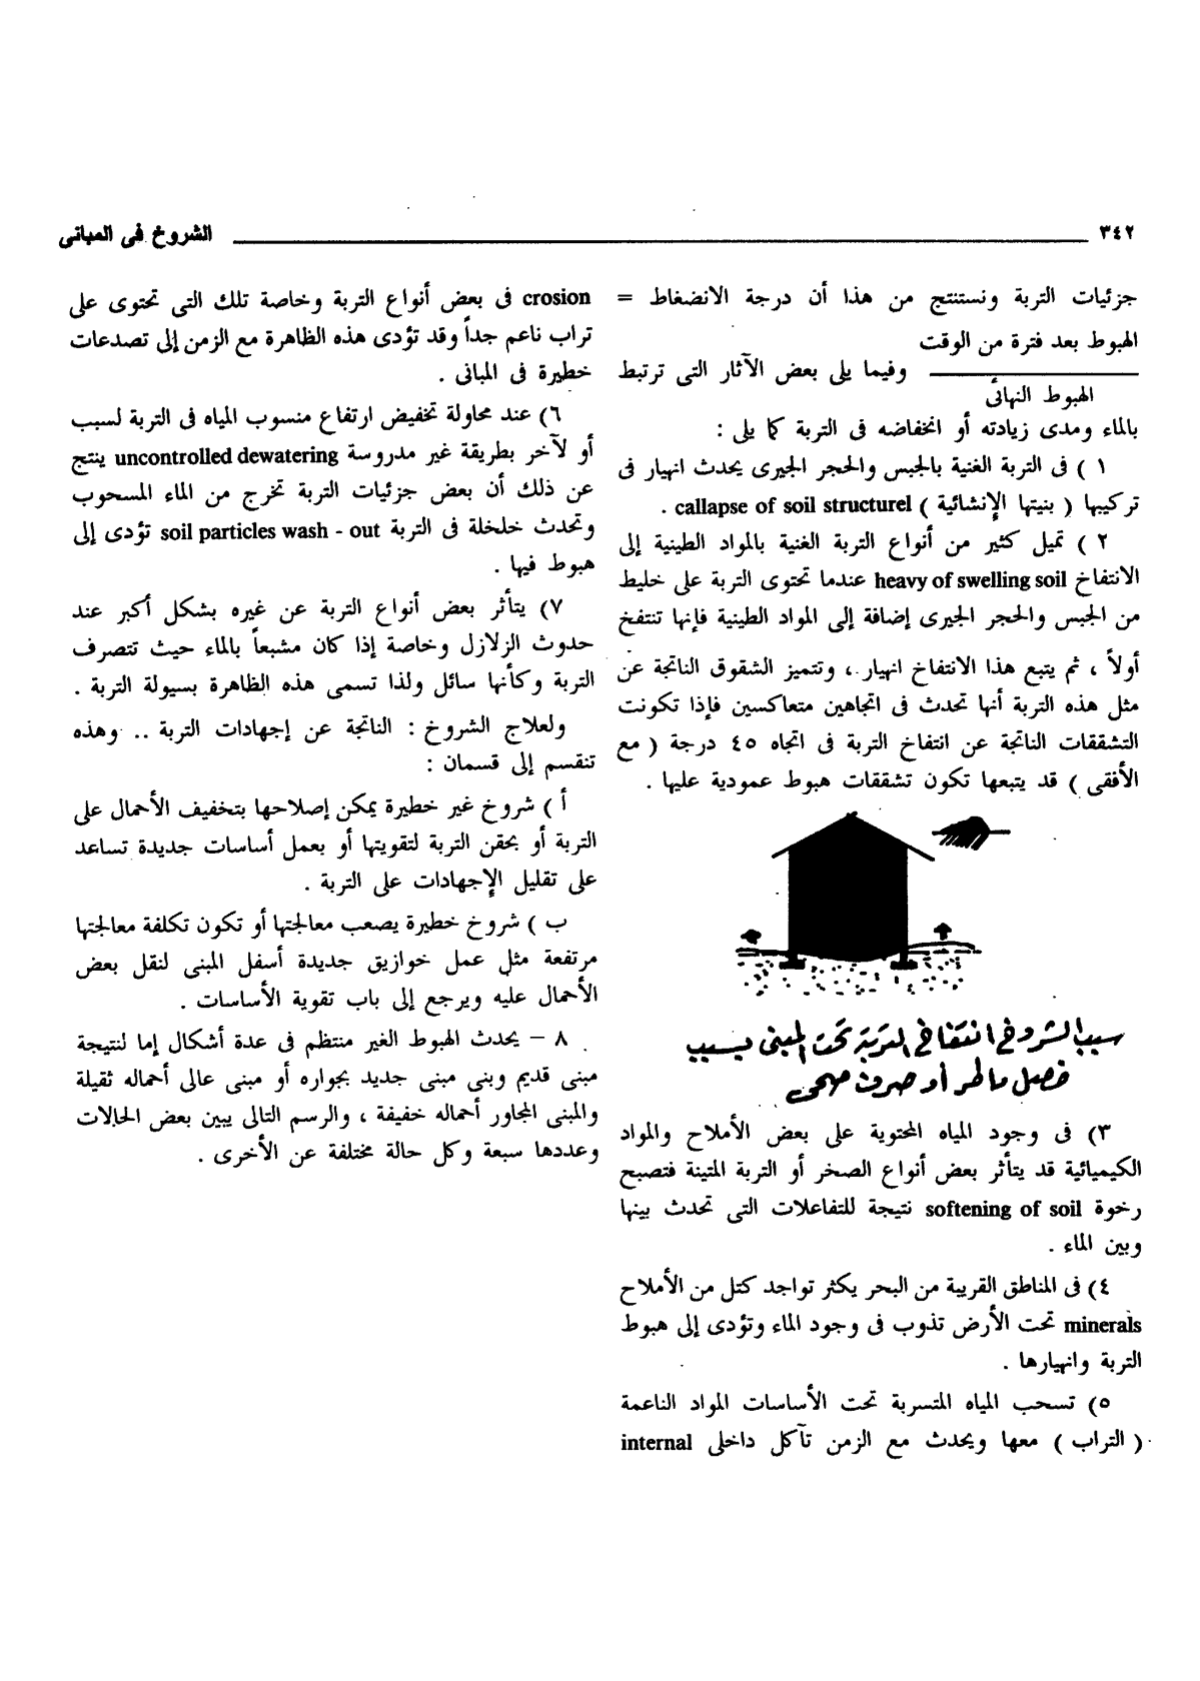 ٣٤٢
الشروخ فى المبانى
جزئيات التربة ونستنتج من هذا أن درجة الانضغاط =
الهبوط بعد فترة من الوقت
وفيما يلى بعض الآثار التى ترتبط
الهبوط النهائى
بالماء ومدى زيادته أو انخفاضه فى التربة كما يلى :
١ ) فى التربة الغنية بالجبس والحجر الجيرى يحدث انهيار فى
تركيبها ( بنيتها الإنشائية ) callapse of soil structurel .
٢ ) تميل كثير من أنواع التربة الغنية بالمواد الطينية إلى
الانتفاخ heavy of swelling soil عندما تحتوى التربة على خليط
من الجبس والحجر الجيرى إضافة إلى المواد الطينية فإنها تنتفخ
أولاً ، ثم يتبع هذا الانتفاخ انهيار ، وتتميز الشقوق الناتجة عن
مثل هذه التربة أنها تحدث فى اتجاهين متعاكسين فإذا تكونت
التشققات الناتجة عن انتفاخ التربة فى اتجاه ٤٥ درجة ( مع
الأفقى ) قد يتبعها تكون تشققات هبوط عمودية عليها .
سبب الشروخ انتفاخ التربة تحت المبنى بسبب
فصل ماطر أو صرف صحى
٣) فى وجود المياه المحتوية على بعض الأملاح والمواد
الكيميائية قد يتأثر بعض أنواع الصخر أو التربة المتينة فتصبح
رخوة softening of soil نتيجة للتفاعلات التى تحدث بينها
وبين الماء .
٤) فى المناطق القريبة من البحر يكثر تواجد كتل من الأملاح
minerals تحت الأرض تذوب فى وجود الماء وتؤدى إلى هبوط
التربة وانهيارها .
٥) تسحب المياه المتسربة تحت الأساسات المواد الناعمة
( التراب ) معها ويحدث مع الزمن تآكل داخلى internal
crosion فى بعض أنواع التربة وخاصة تلك التى تحتوى على
تراب ناعم جداً وقد تؤدى هذه الظاهرة مع الزمن إلى تصدعات
خطيرة فى المبانى .
٦) عند محاولة تخفيض ارتفاع منسوب المياه فى التربة لسبب
أو لآخر بطريقة غير مدروسة uncontrolled dewatering ينتج
عن ذلك أن بعض جزئيات التربة تخرج من الماء المسحوب
وتحدث خلخلة فى التربة soil particles wash - out تؤدى إلى
هبوط فيها .
٧) يتأثر بعض أنواع التربة عن غيره بشكل أكبر عند
حدوث الزلازل وخاصة إذا كان مشبعاً بالماء حيث تتصرف
التربة وكأنها سائل ولذا تسمى هذه الظاهرة بسيولة التربة .
ولعلاج الشروخ : الناتجة عن إجهادات التربة .. وهذه
تنقسم إلى قسمان :
أ ) شروخ غير خطيرة يمكن إصلاحها بتخفيف الأحمال على
التربة أو بحقن التربة لتقويتها أو بعمل أساسات جديدة تساعد
على تقليل الإجهادات على التربة .
ب ) شروخ خطيرة يصعب معالجتها أو تكون تكلفة معالجتها
مرتفعة مثل عمل خوازيق جديدة أسفل المبنى لنقل بعض
الأحمال عليه ويرجع إلى باب تقوية الأساسات .
٨ – يحدث الهبوط الغير منتظم فى عدة أشكال إما لنتيجة
مبنى قديم وبنى مبنى جديد بجواره أو مبنى عالى أحماله ثقيلة
والمبنى المجاور أحماله خفيفة ، والرسم التالى يبين بعض الحالات
وعددها سبعة وكل حالة مختلفة عن الأخرى .